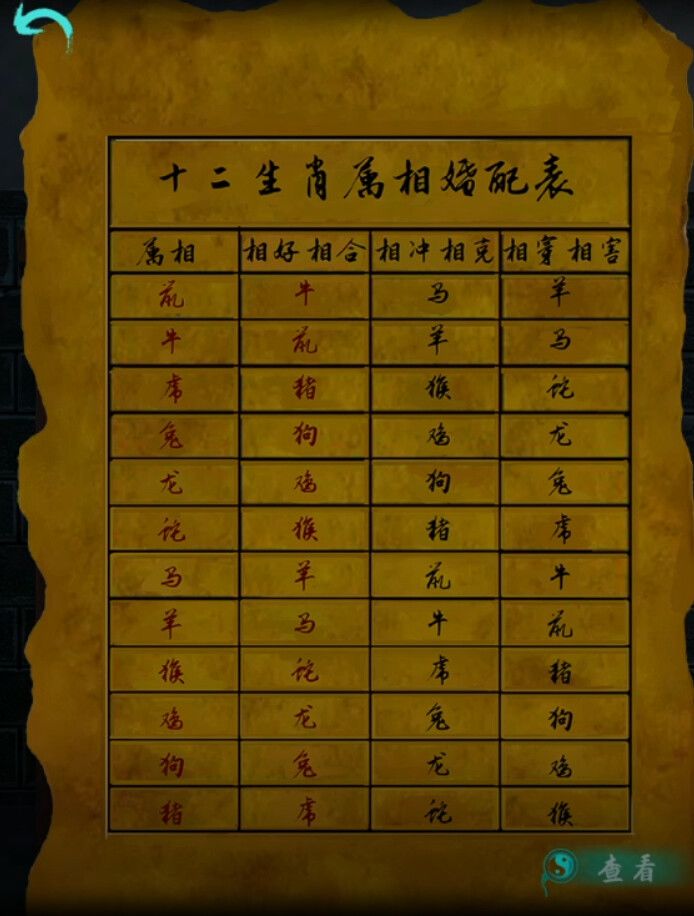 十二生肖属相婚配表
属相 相好相合 相冲相克 相穿相害
鼠 牛 马 羊
牛 鼠 羊 马
虎 猪 猴 蛇
兔 狗 鸡 龙
龙 鸡 狗 兔
蛇 猴 猪 虎
马 羊 鼠 牛
羊 马 牛 鼠
猴 蛇 虎 猪
鸡 龙 兔 狗
狗 兔 龙 鸡
猪 虎 蛇 猴
查看